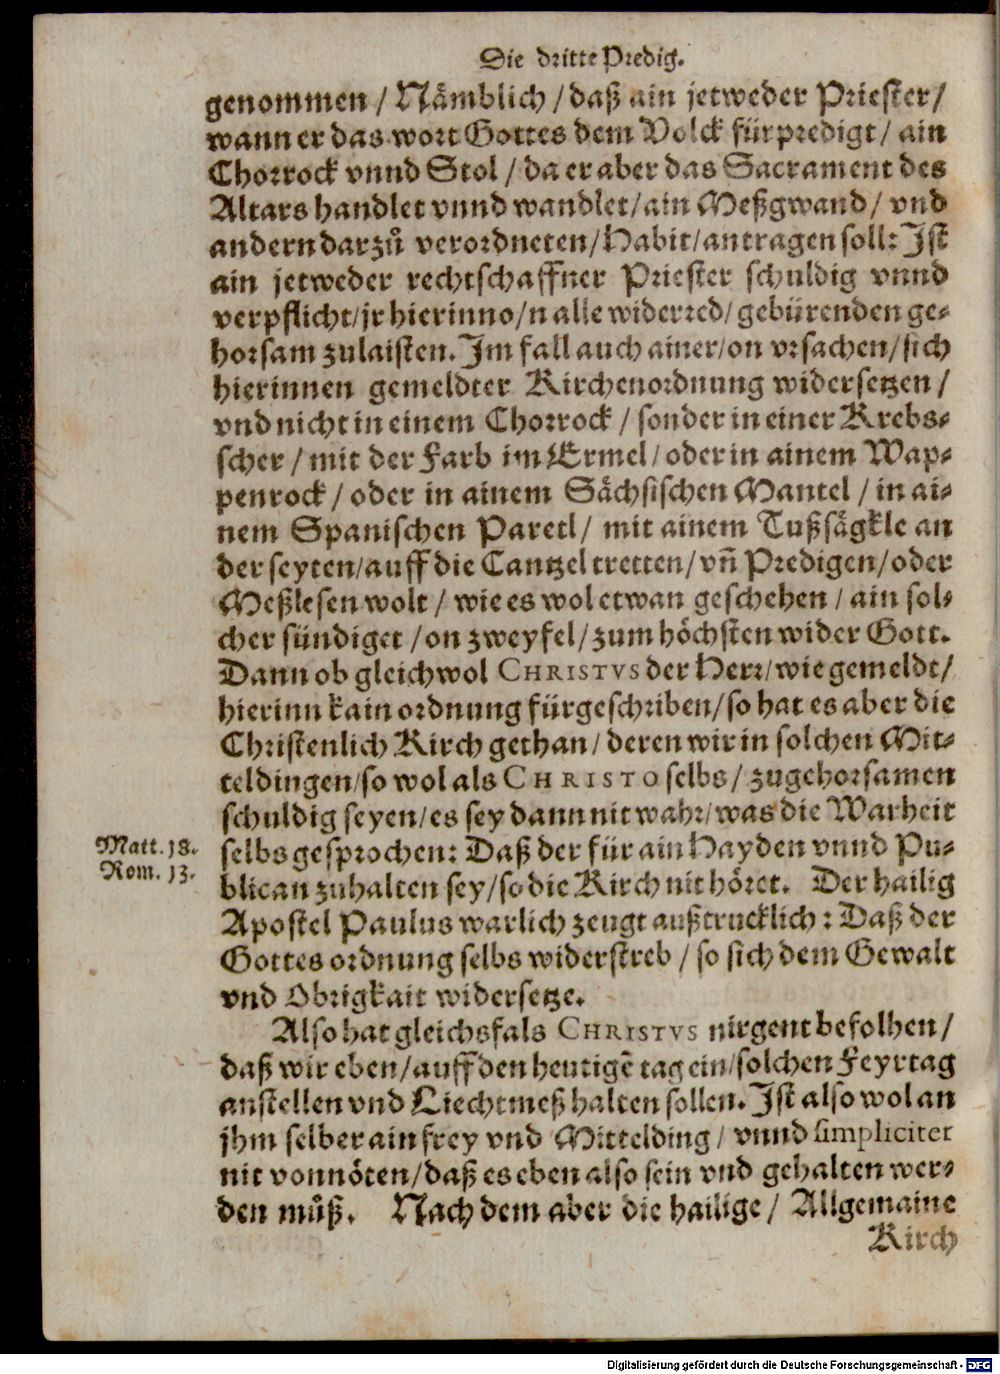 Die dritte Predig.
genommen / Nämblich / daß ain jetweder Priester /
wann er das wort Gottes dem Volck fürpredigt / ain
Chorrock vnnd Stol / da er aber das Sacrament des
Altars handlet vnnd wandlet / ain Meßgwand / vnd
andern darzů verordneten / Habit / antragen soll: Ist
ain jetweder rechtschaffner Priester schuldig vnnd
verpflicht / jr hierinno / n alle widerred / gebürenden ge⸗
horsam zulaisten. Im fall auch ainer / on vrsachen / sich
hierinnen gemeldter Kirchenordnung widersetzen /
vnd nicht in einem Chorrock / sonder in einer Krebs⸗
scher / mit der Farb im Ermel / oder in ainem Wap⸗
penrock / oder in ainem Sächsischen Mantel / in ai⸗
nem Spanischen Paretl / mit ainem Tußsägkle an
der seyten / auff die Cantzel tretten / vñ Predigen / oder
Meßlesen wolt / wie es wol etwan geschehen / ain sol⸗
cher sündiget / on zweyfel / zum höchsten wider Gott.
Dann ob gleichwol CHRISTVS der Herr / wie gemeldt /
hierinn kain ordnung fürgeschriben / so hat es aber die
Christenlich Kirch gethan / deren wir in solchen Mit⸗
teldingen / so wol als CHRISTO selbs / zugehorsamen
schuldig seyen / es sey dann nit wahr / was die Warheit
selbs gesprochen: Daß der für ain Hayden vnnd Pu⸗
blican zuhalten sey / so die Kirch nit höret. Der hailig
Apostel Paulus warlich zeugt außtrucklich: Daß der
Gottes ordnung selbs widerstreb / so sich dem Gewalt
vnd Obrigkait widersetze.
Matt. 18.
Rom. 13.
Also hat gleichsfals CHRISTVS nirgent befolhen /
daß wir eben / auff den heutigẽ tag ein / solchen Feyrtag
anstellen vnd Liechtmeß halten sollen. Ist also wol an
jhm selber ain frey vnd Mittelding / vnnd simpliciter
nit vonnöten / daß es eben also sein vnd gehalten wer⸗
den můß. Nach dem aber die hailige / Allgemaine
Kirch
Digitalisierung gefördert durch die Deutsche Forschungsgemeinschaft - DFG